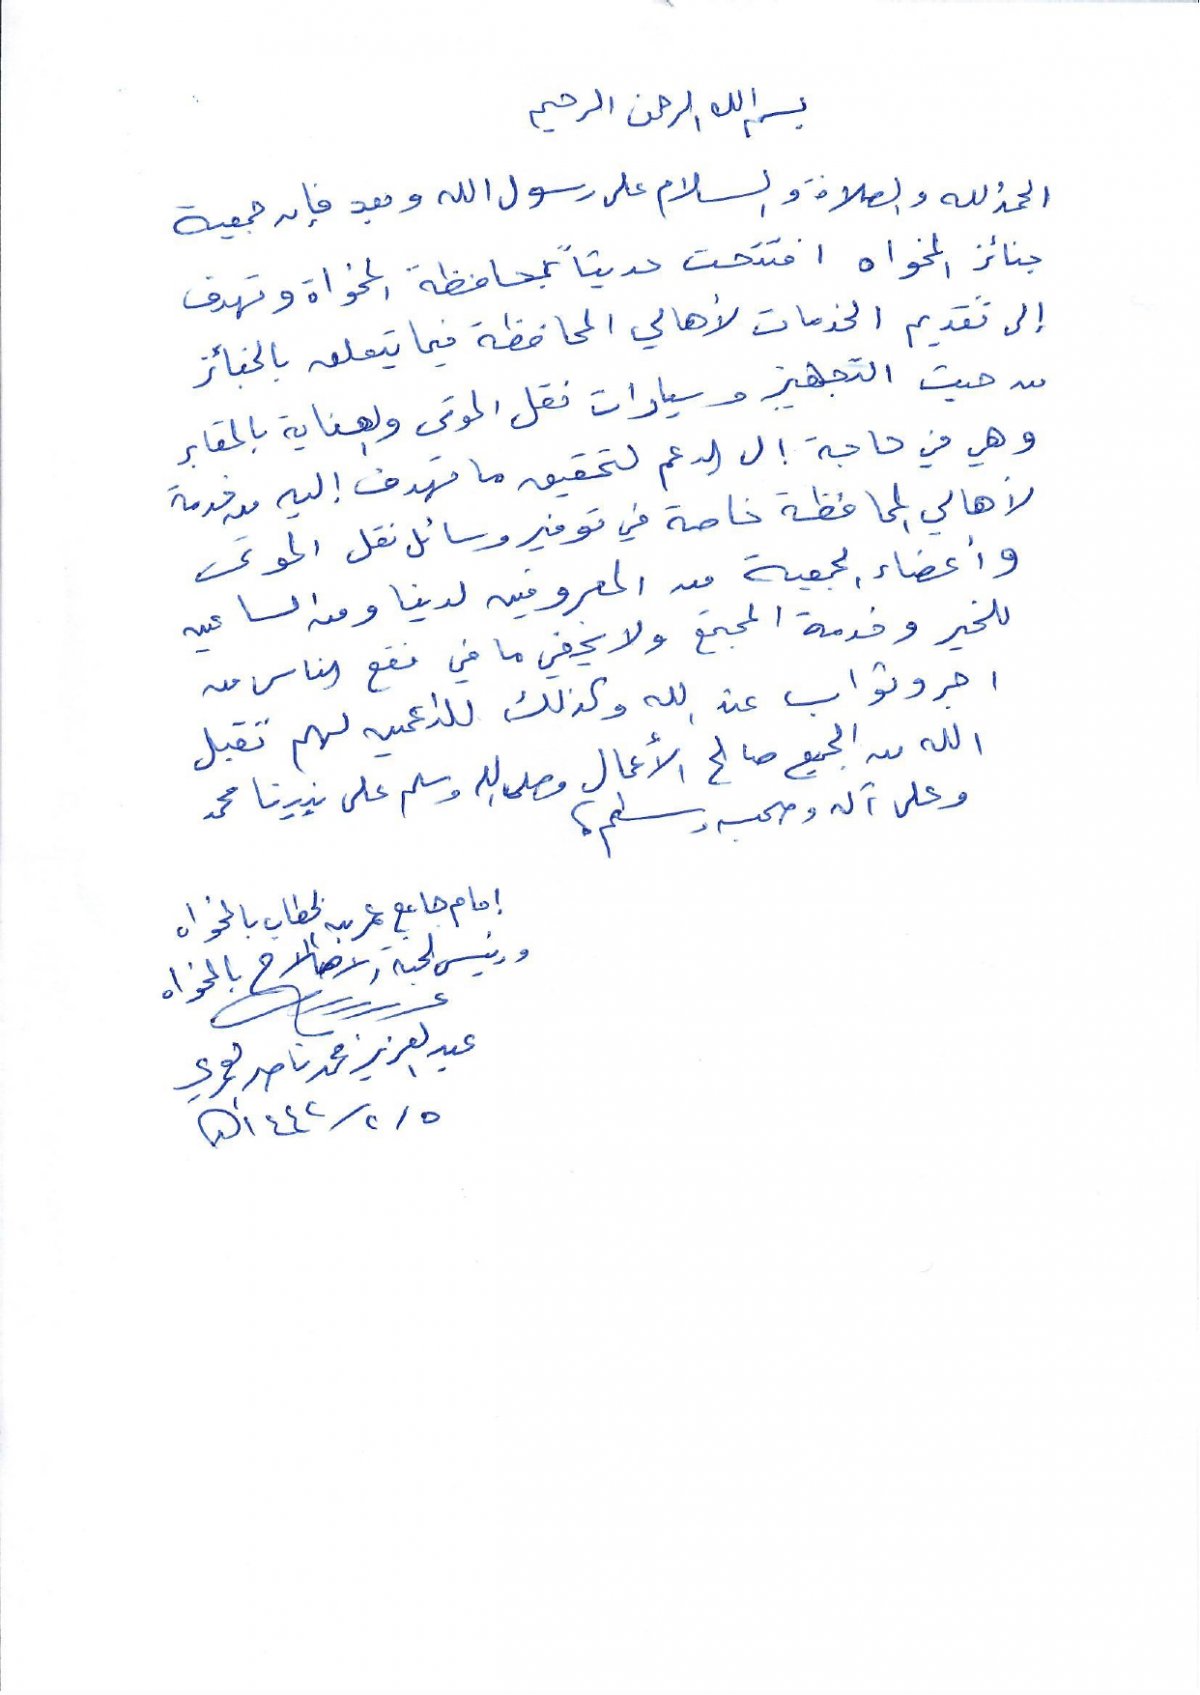 بسم الله الرحمن الرحيم
الحمد لله والصلاة والسلام على رسول الله وبعد فإن جمعية
جنائز المخواه افتتحت حديثاً بمحافظة المخواة وتهدف
إلى تقديم الخدمات لأهالي المحافظة فيما يتعلق بالجنائز
من حيث التجهيز وسيارات نقل الموتى والعناية بالمقابر
وهي في حاجة إلى الدعم لتحقيق ما تهدف إليه من خدمة
لأهالي المحافظة خاصة في توفير وسائل نقل الموتى
وأعضاء الجمعية من المعروفين لدينا ومن الساعين
للخير وخدمة المجتمع ولا يخفى ما في نفع الناس من
اجر وثواب عند الله وكذلك للداعمين لهم تقبل
الله من الجميع صالح الأعمال وصلى الله وسلم على نبينا محمد
وعلى آله وصحبه وسلم؛
إمام جامع عمر بن الخطاب بالمخواه
ورئيس لجنة الإصلاح بالمخواه
عبد العزيز محمد ناصر العمري
٥ / ٢ / ١٤٤٢هـ